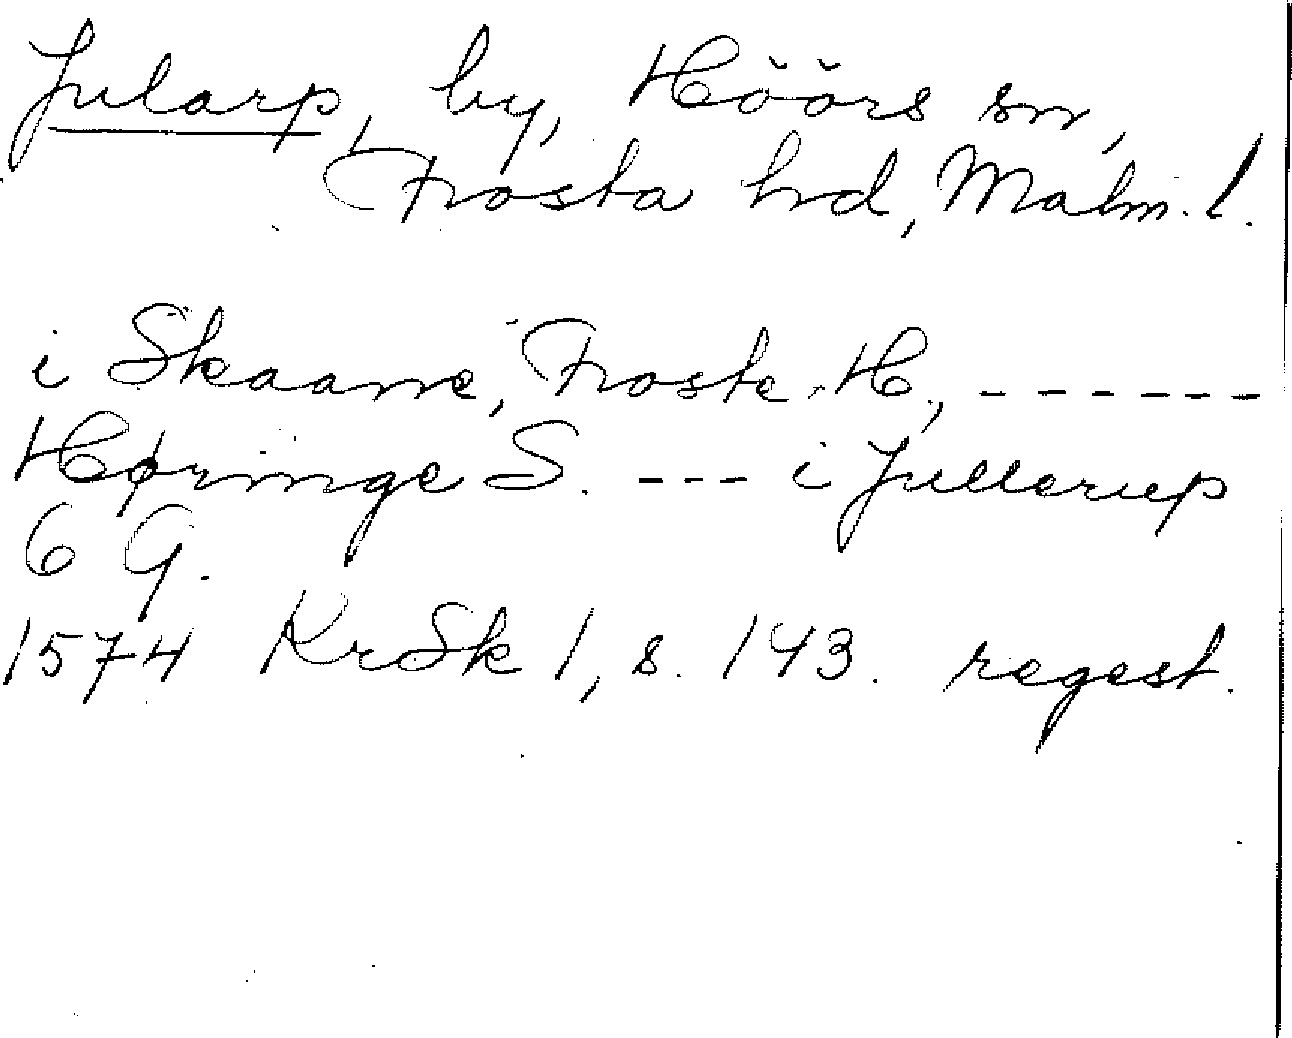 Jularp, by, Höörs sn,
Frosta hrd, Malm. l.
i Skaane, Froste H., ------
Høringe S. --- i Jullerup
6 G.
1574 KrSk 1, s. 143. regest.